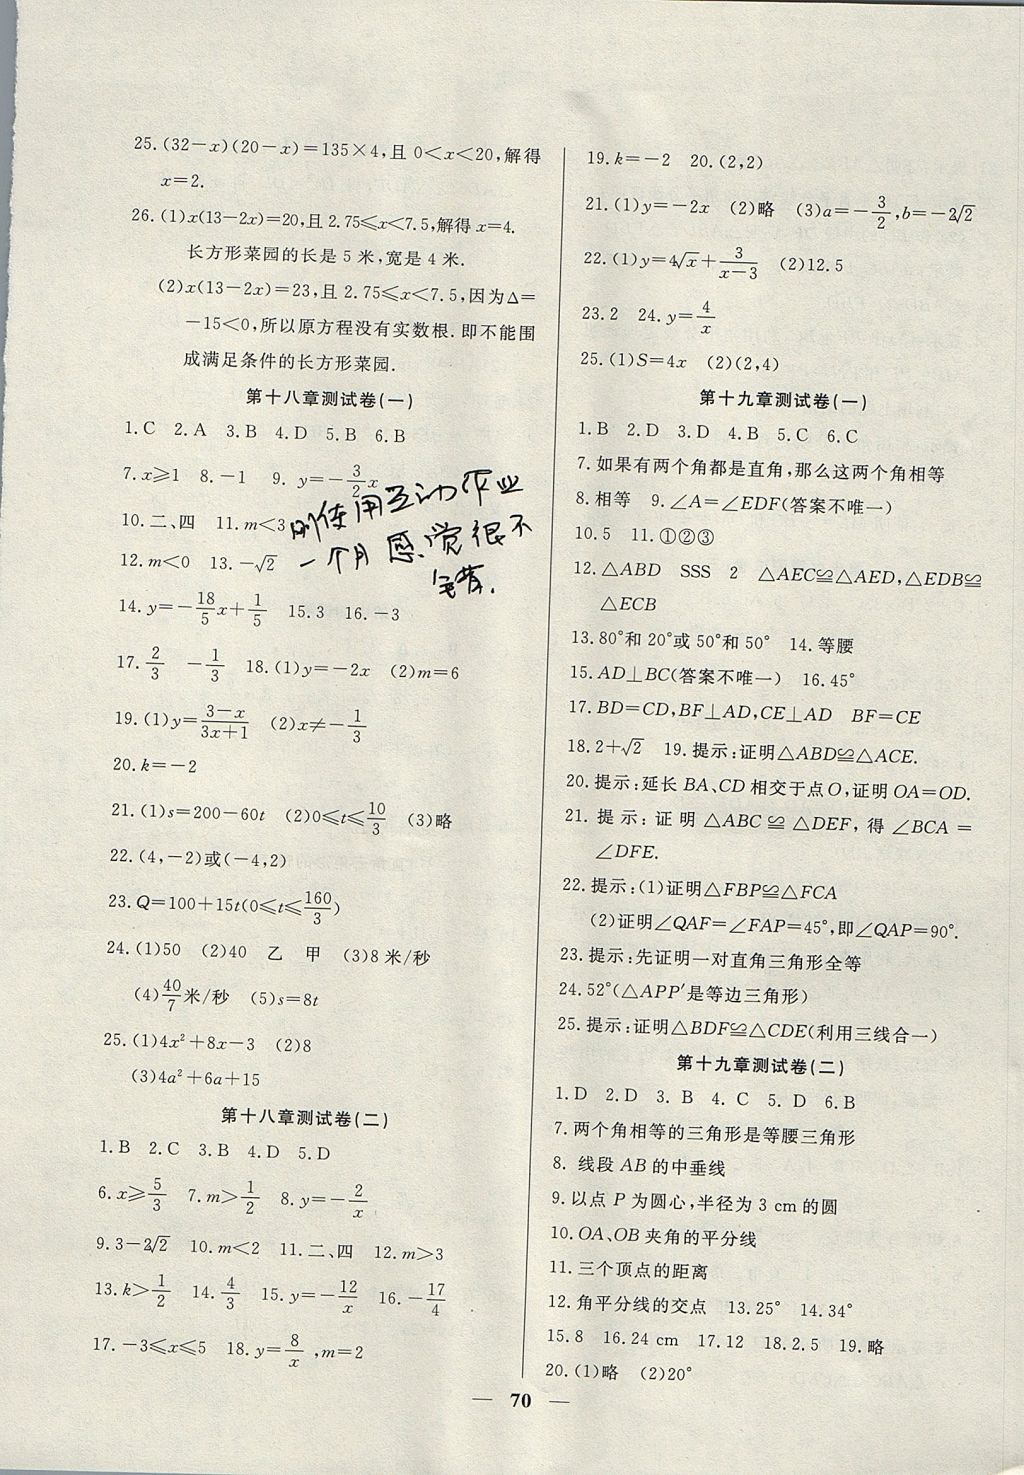 25.(32-x)(20-x)=135×4,且0<x<20,解得
x=2.
26.(1)x(13-2x)=20,且2.75⩽x<7.5,解得x=4.
长方形菜园的长是5米,宽是4米.
(2)x(13-2x)=23,且2.75⩽x<7.5,因为Δ=
-15<0,所以原方程没有实数根.即不能围
成满足条件的长方形菜园.
第十八章测试卷(一)
1.C 2.A 3.B 4.D 5.B 6.B
7.x⩾1 8.-1 9. y=-3/2x
10.二、四 11.m<3
12.m<0 13.-√2
刚使用互动作业
一个月感觉很不
14.y=-18/5x+1/5 15.3 16.-3
17.2/3 -1/3 18.(1)y=-2x (2)m=6
19.(1)y=3-x/3x+1 (2)x≠-1/3
20.k=-2
21.(1)s=200-60t (2)0⩽t⩽10/3 (3)略
22.(4,-2)或(-4,2)
23.Q=100+15t(0⩽t⩽160/3)
24.(1)50 (2)40 乙 甲 (3)8米/秒
(4)40/7米/秒 (5)s=8t
25.(1)4x²+8x-3 (2)8
(3)4a²+6a+15
第十八章测试卷(二)
1.B 2.C 3.B 4.D 5.D
6.x⩾5/3 7.m>1/2 8.y=-2/x
9.3-2√2 10.m<2 11.二、四 12.m>3
13.k>1/2 14.4/3 15.y=-12/x 16.-17/4
17.-3⩽x⩽5 18.y=8/x,m=2
19.k=-2 20.(2,2)
21.(1)y=-2x (2)略 (3)a=-3/2,b=-2√2
22.(1)y=4√x+3/x-3 (2)12.5
23.2 24.y=4/x
25.(1)S=4x (2)(2,4)
第十九章测试卷(一)
1.B 2.D 3.D 4.B 5.C 6.C
7.如果有两个角都是直角,那么这两个角相等
8.相等 9.∠A=∠EDF(答案不唯一)
10.5 11.①②③
12.△ABD SSS 2 △AEC≌△AED,△EDB≌
△ECB
13.80°和20°或50°和50° 14.等腰
15.AD⊥BC(答案不唯一) 16.45°
17.BD=CD,BF⊥AD,CE⊥AD BF=CE
18.2+√2 19.提示:证明△ABD≌△ACE.
20.提示:延长BA、CD相交于点O,证明OA=OD.
21.提示:证明△ABC≌△DEF,得∠BCA=
∠DFE.
22.提示:(1)证明△FBP≌△FCA
(2)证明∠QAF=∠FAP=45°,即∠QAP=90°.
23.提示:先证明一对直角三角形全等
24.52°(△APP′是等边三角形)
25.提示:证明△BDF≌△CDE(利用三线合一)
第十九章测试卷(二)
1.D 2.D 3.B 4.C 5.D 6.B
7.两个角相等的三角形是等腰三角形
8. 线段AB的中垂线
9.以点P为圆心,半径为3 cm的圆
10.OA、OB夹角的平分线
11.三个顶点的距离
12.角平分线的交点 13.25° 14.34°
15.8 16.24 cm 17.12 18.2.5 19.略
20.(1)略 (2)20°
— 70 —